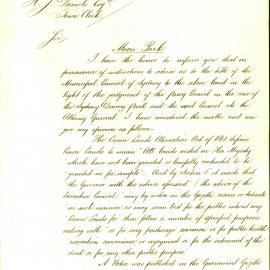 Town Clerk
Sir
Moore Park
I have the honor to inform you that in
pursuance of instructions to advise as to the title of the
Municipal Council of Sydney to the above land in the
light of the judgment of the Privy Council in the case of
the Sydney Driving Park and the said Council v the
Attorney General, I have considered the matter and now
give my opinion as follows.
The Crown Lands Alienation Act of 1861 defines
Crown Lands to mean "All lands vested in Her Majesty
which have not been granted or lawfully contracted to be
granted in fee simple". And by Section 5 it enacts that
the Governor with the advice of the
Executive Council may by notice in the Gazette reserve or dedicate
in such manner as may seem best for the public interest any
Crown Lands for then follow a number of specified purposes
ending with or for any pasturage common or for public health
recreation convenience or enjoyment or for the interment of the
dead or for any other public purpose
A Notice was published in the Government Gazette